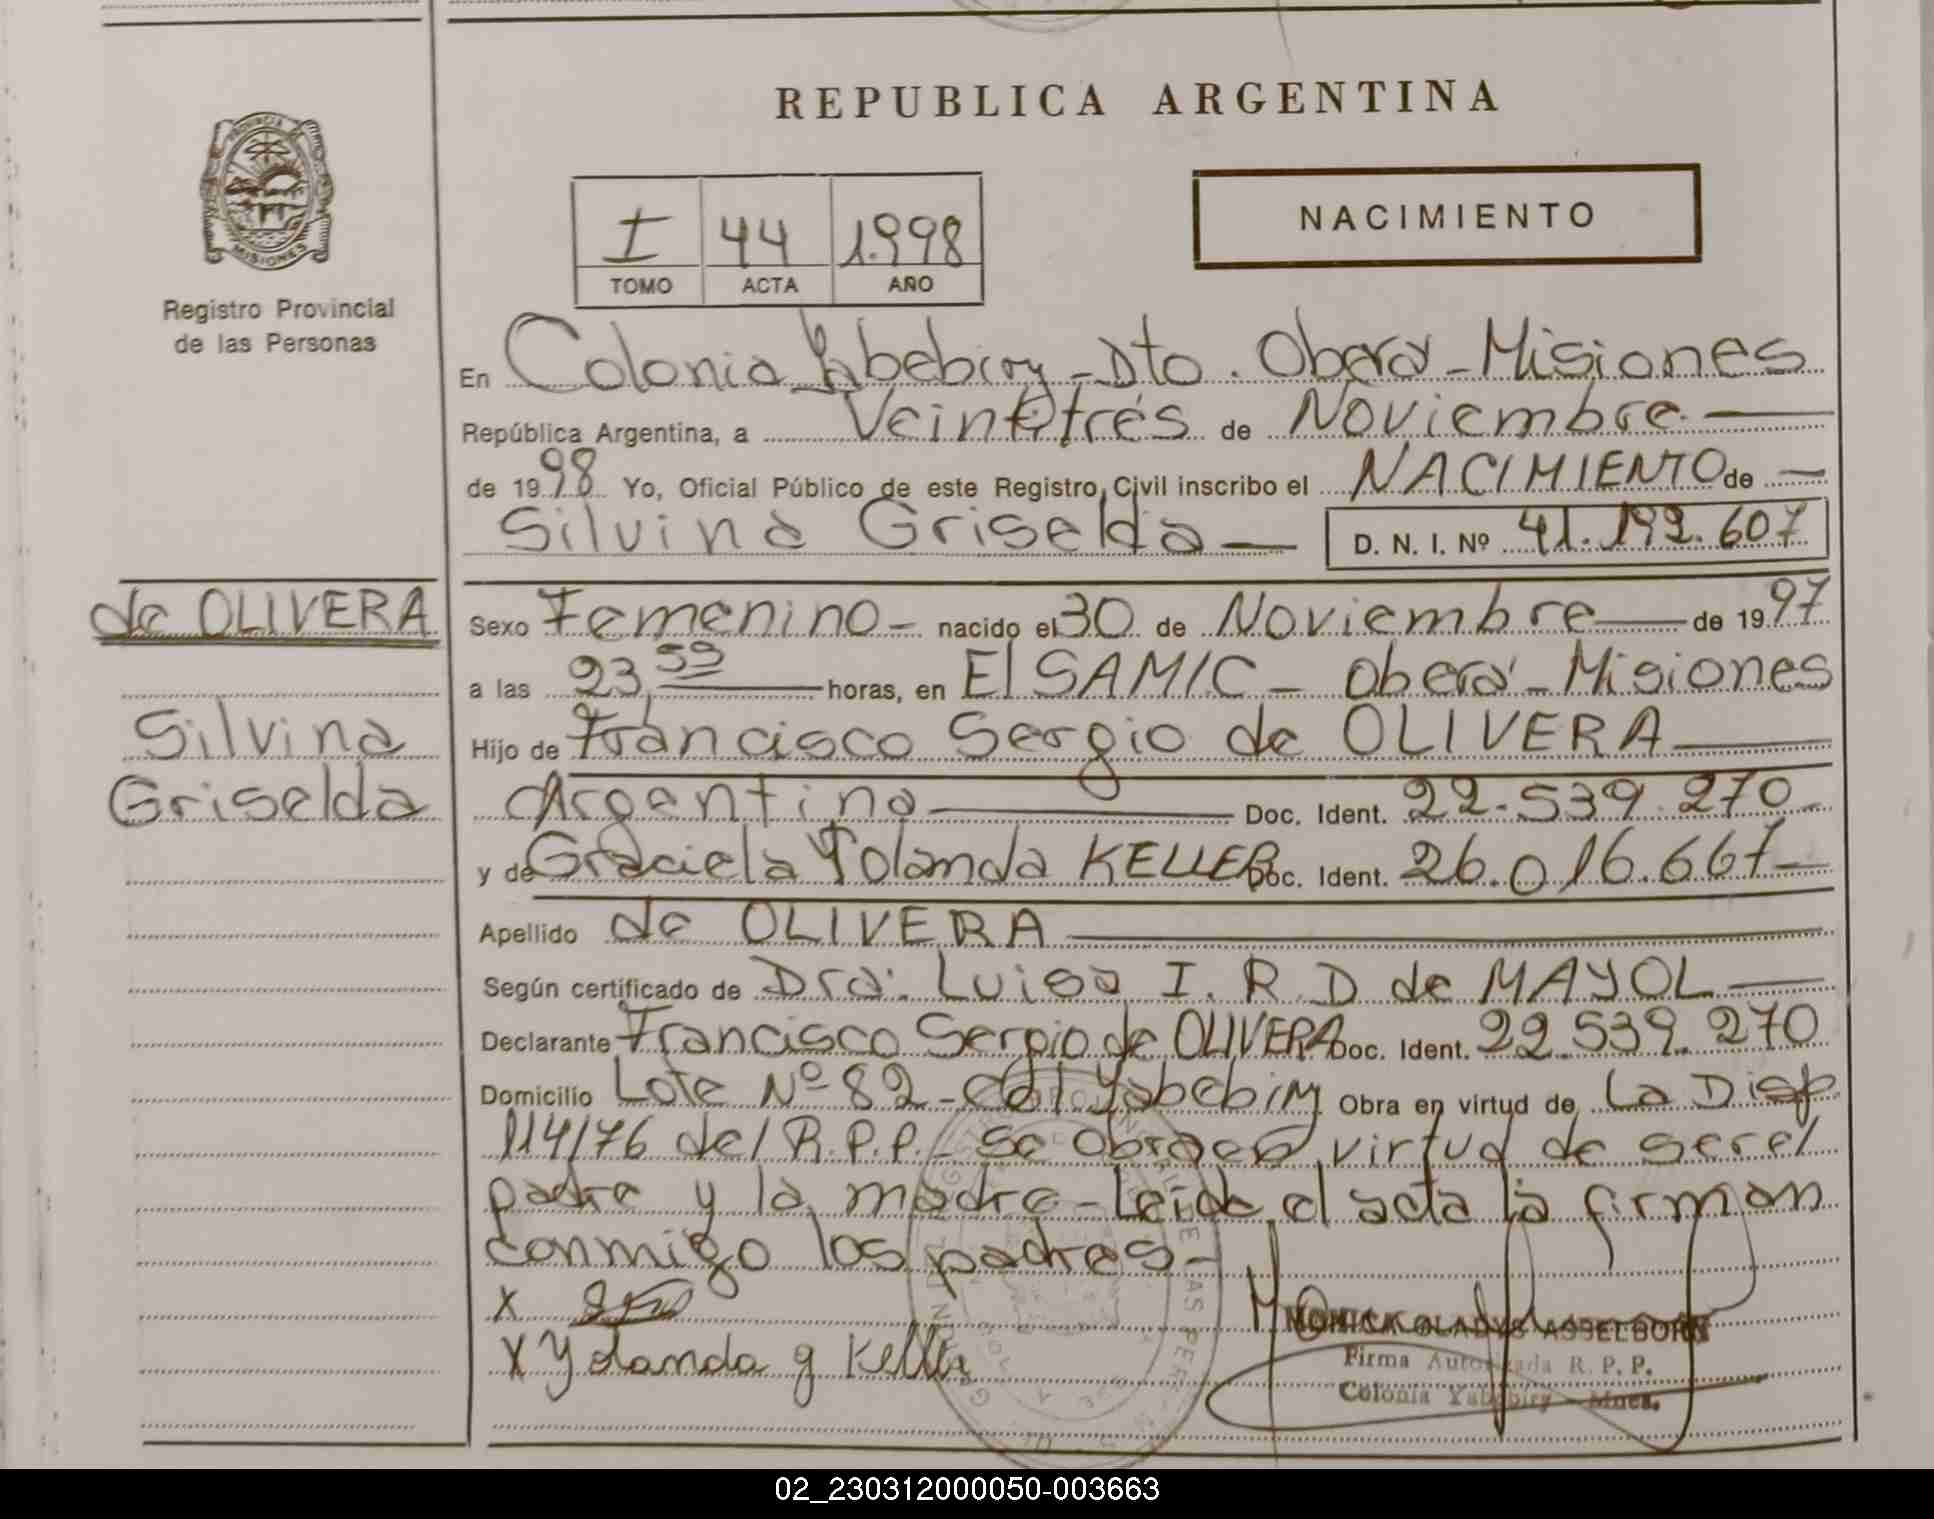 REPUBLICA ARGENTINA
PROVINCIA DE MISIONES
Registro Provincial
de las Personas
I 44 1.998
TOMO ACTA AÑO
NACIMIENTO
En Colonia Yabebiry - Dto. Oberá - Misiones
República Argentina, a Veintitrés de Noviembre
de 1998 Yo, Oficial Público de este Registro Civil inscribo el NACIMIENTO de
Silvina Griselda D. N. I. Nº 41.192.607
de OLIVERA
Silvina
Griselda
Sexo Femenino - nacido el 30 de Noviembre de 1997
a las 23,59 horas, en El SAMIC - Oberá - Misiones
Hijo de Francisco Sergio de OLIVERA
Argentina Doc. Ident. 22.539.270
y de Graciela Yolanda KELLER Doc. Ident. 26.016.667
Apellido de OLIVERA
Según certificado de Dra. Luisa I. R. D de MAYOL
Declarante Francisco Sergio de OLIVERA Doc. Ident. 22.539.270
Domicilio Lote Nº 82 - Col Yabebiry Obra en virtud de La Disp
114/76 del R.P.P. - Se obra en virtud de ser el
padre y la madre - Leida el acta la firman
conmigo los padres -
X
X Yolanda g Keller
MONICA GLADYS ASSELBORN
Firma Autorizada R. P. P.
Colonia Yabebiry - Mnes.
02_230312000050-003663